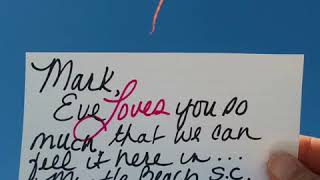 Mark,
Eve Loves you so
much, that we can
feel it here in...
Myrtle Beach S.C.